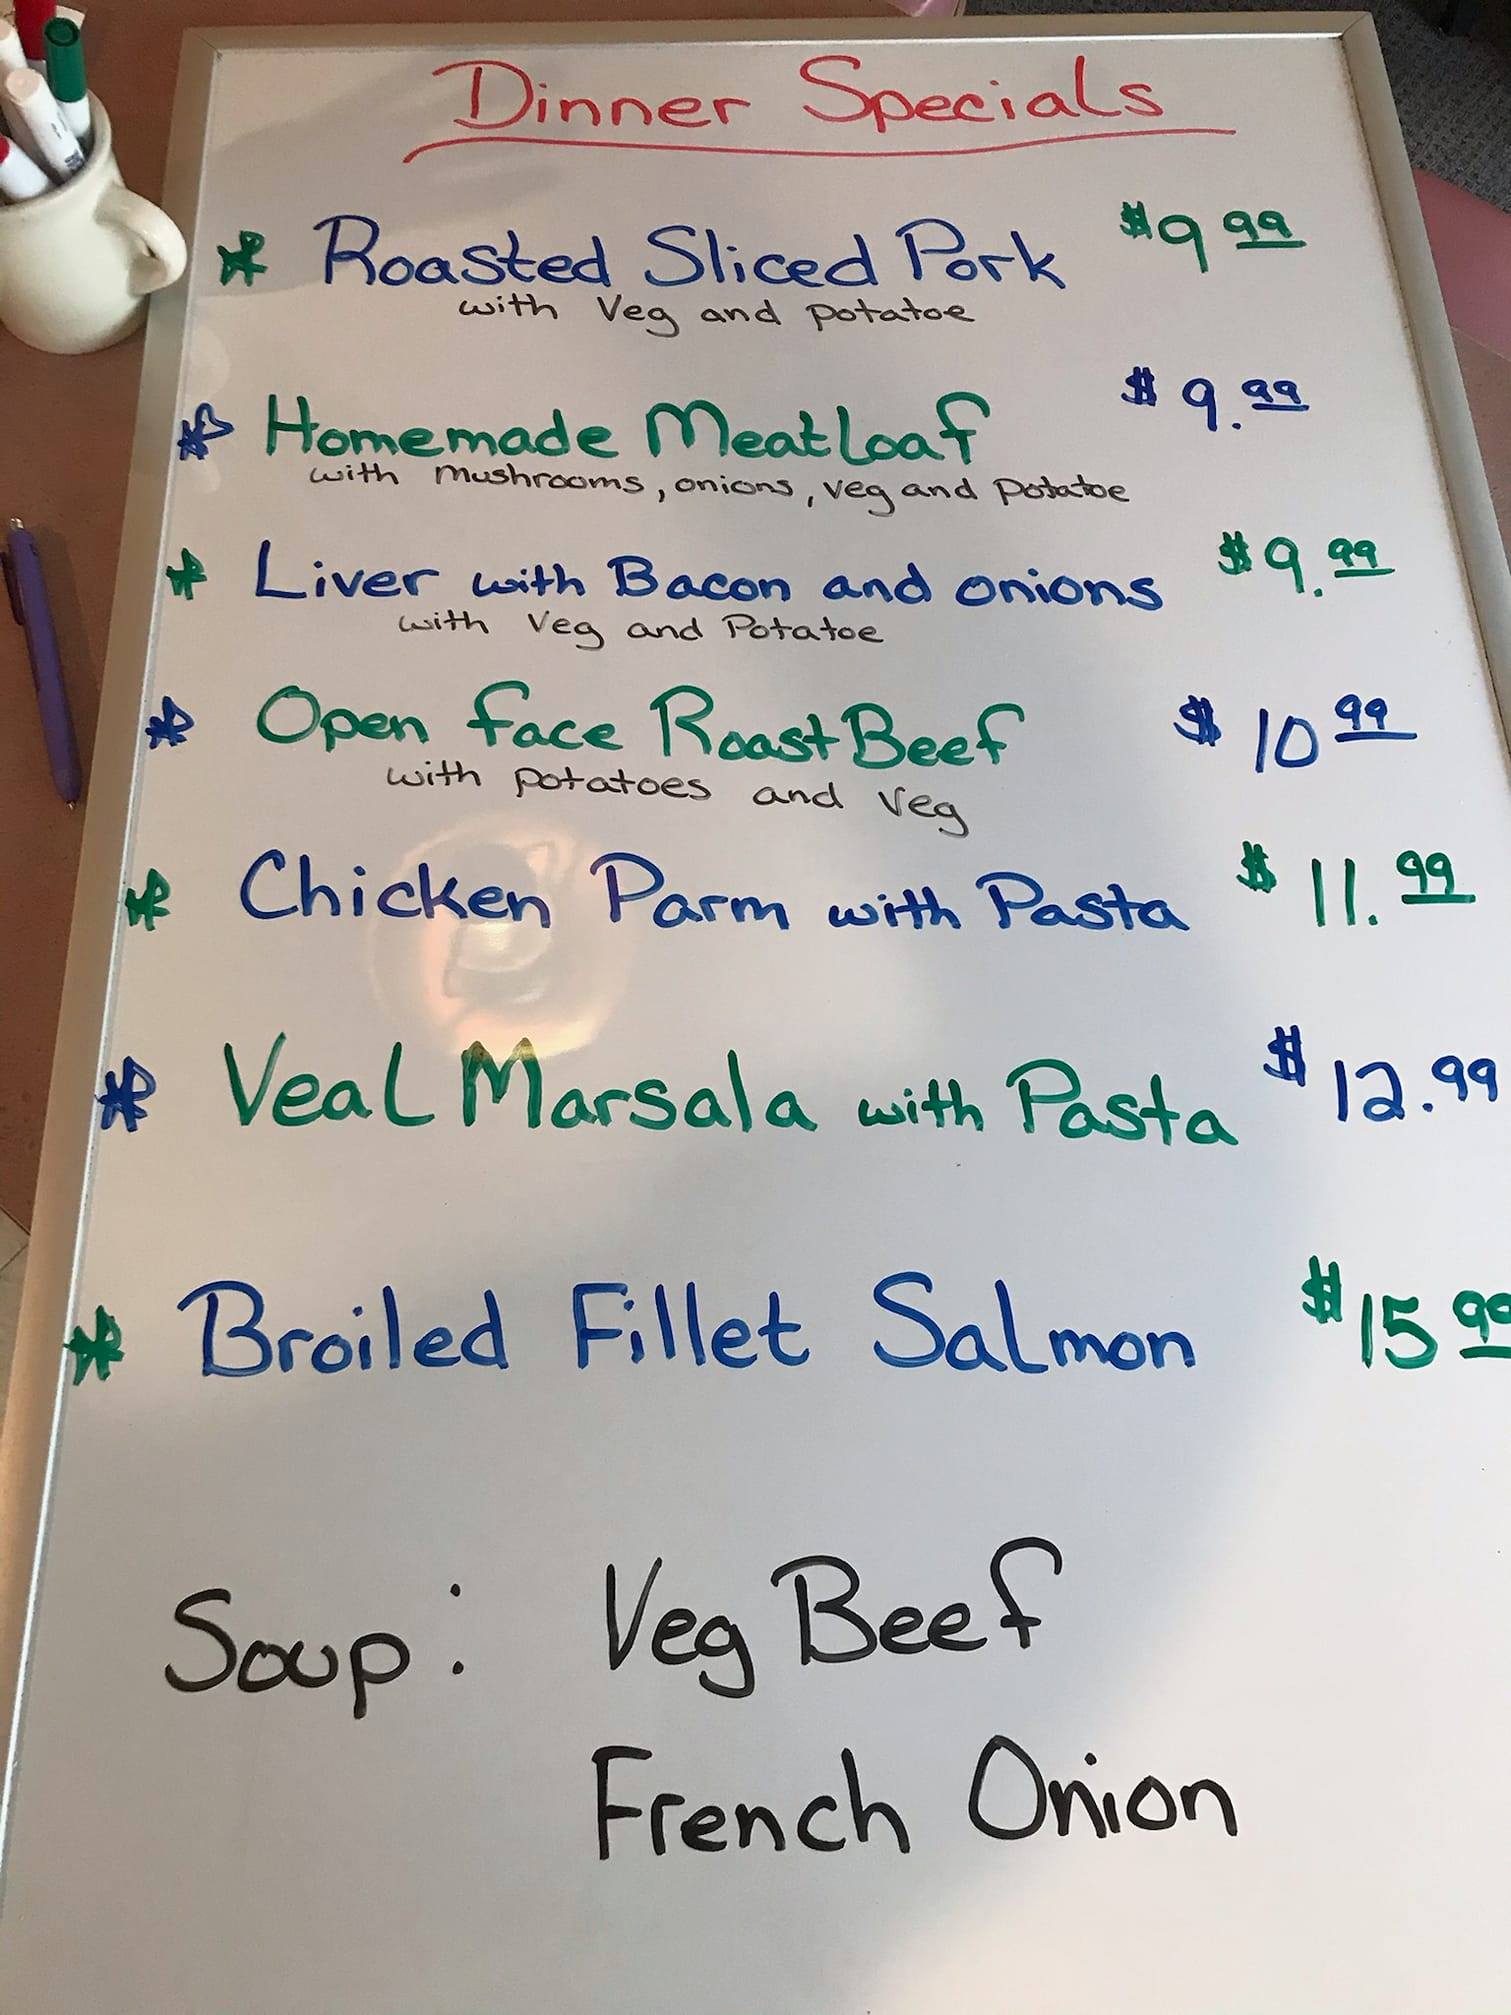 Dinner Specials
* Roasted Sliced Pork $9 99
with Veg and potatoe
* Homemade Meatloaf $9.99
with mushrooms, onions, veg and Potatoe
* Liver with Bacon and onions $9.99
with Veg and Potatoe
* Open face Roast Beef $10 99
with potatoes and veg
* Chicken Parm with Pasta $11.99
* Veal Marsala with Pasta $12.99
* Broiled Fillet Salmon $15 99
Soup: Veg Beef
French Onion